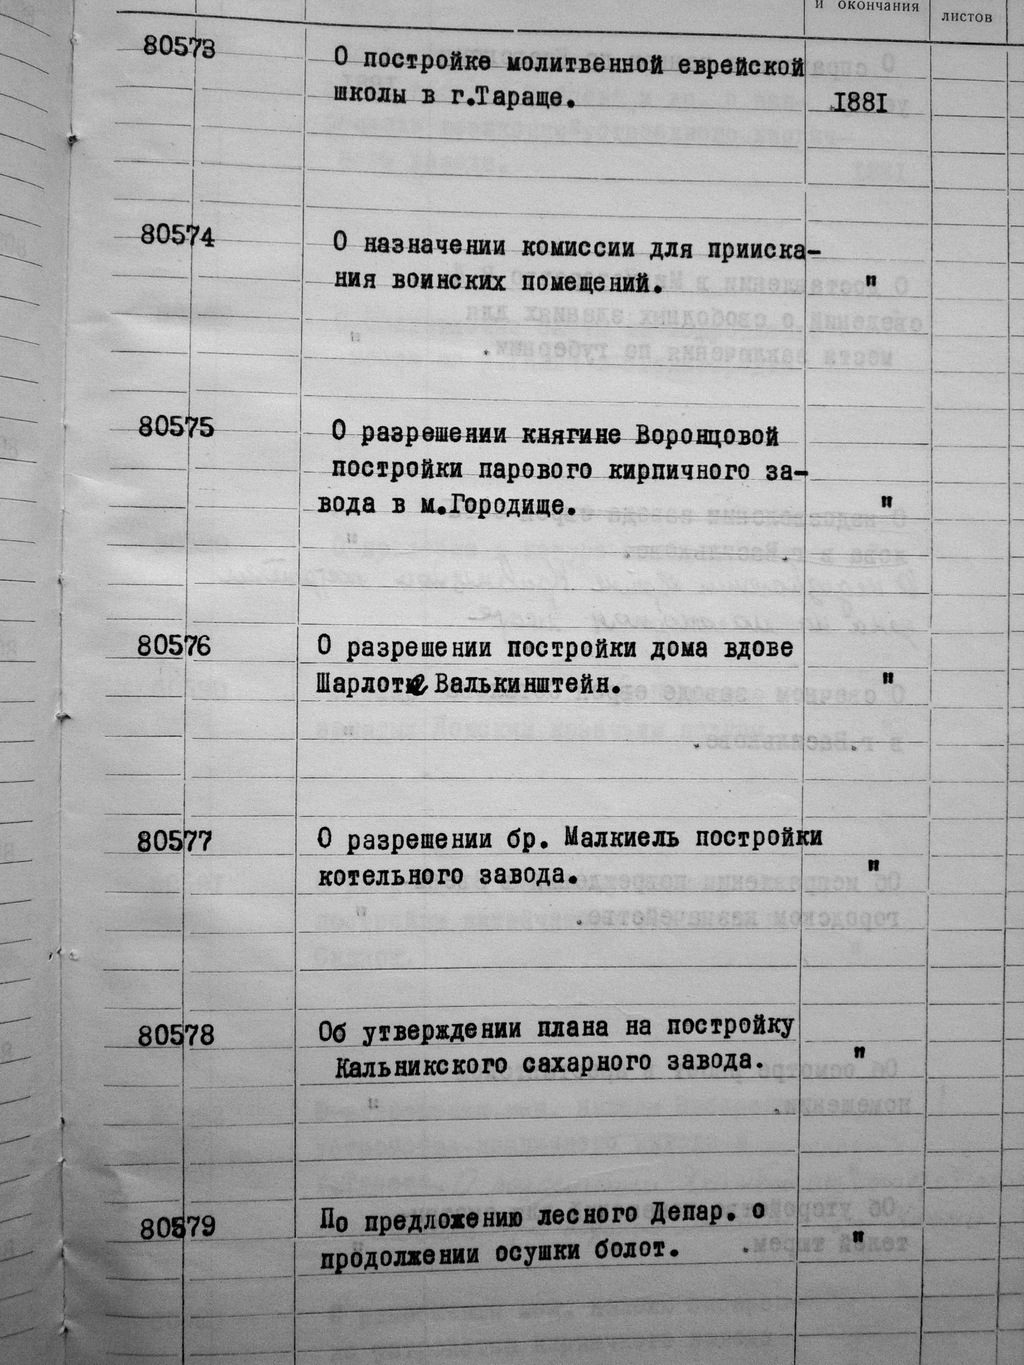 и окончания
листов
80573
О постройке молитвенной еврейской
школы в г.Тараще.
1881
80574
О назначении комиссии для прииска-
ния воинских помещений.
"
80575
О разрешении княгине Воронцовой
постройки парового кирпичного за-
вода в м.Городище.
"
80576
О разрешении постройки дома вдове
Шарлоте Валькинштейн.
"
80577
О разрешении бр. Малкиель постройки
котельного завода.
"
80578
Об утверждении плана на постройку
Кальникского сахарного завода.
"
80579
По предложению лесного Депар. о
продолжении осушки болот.
"